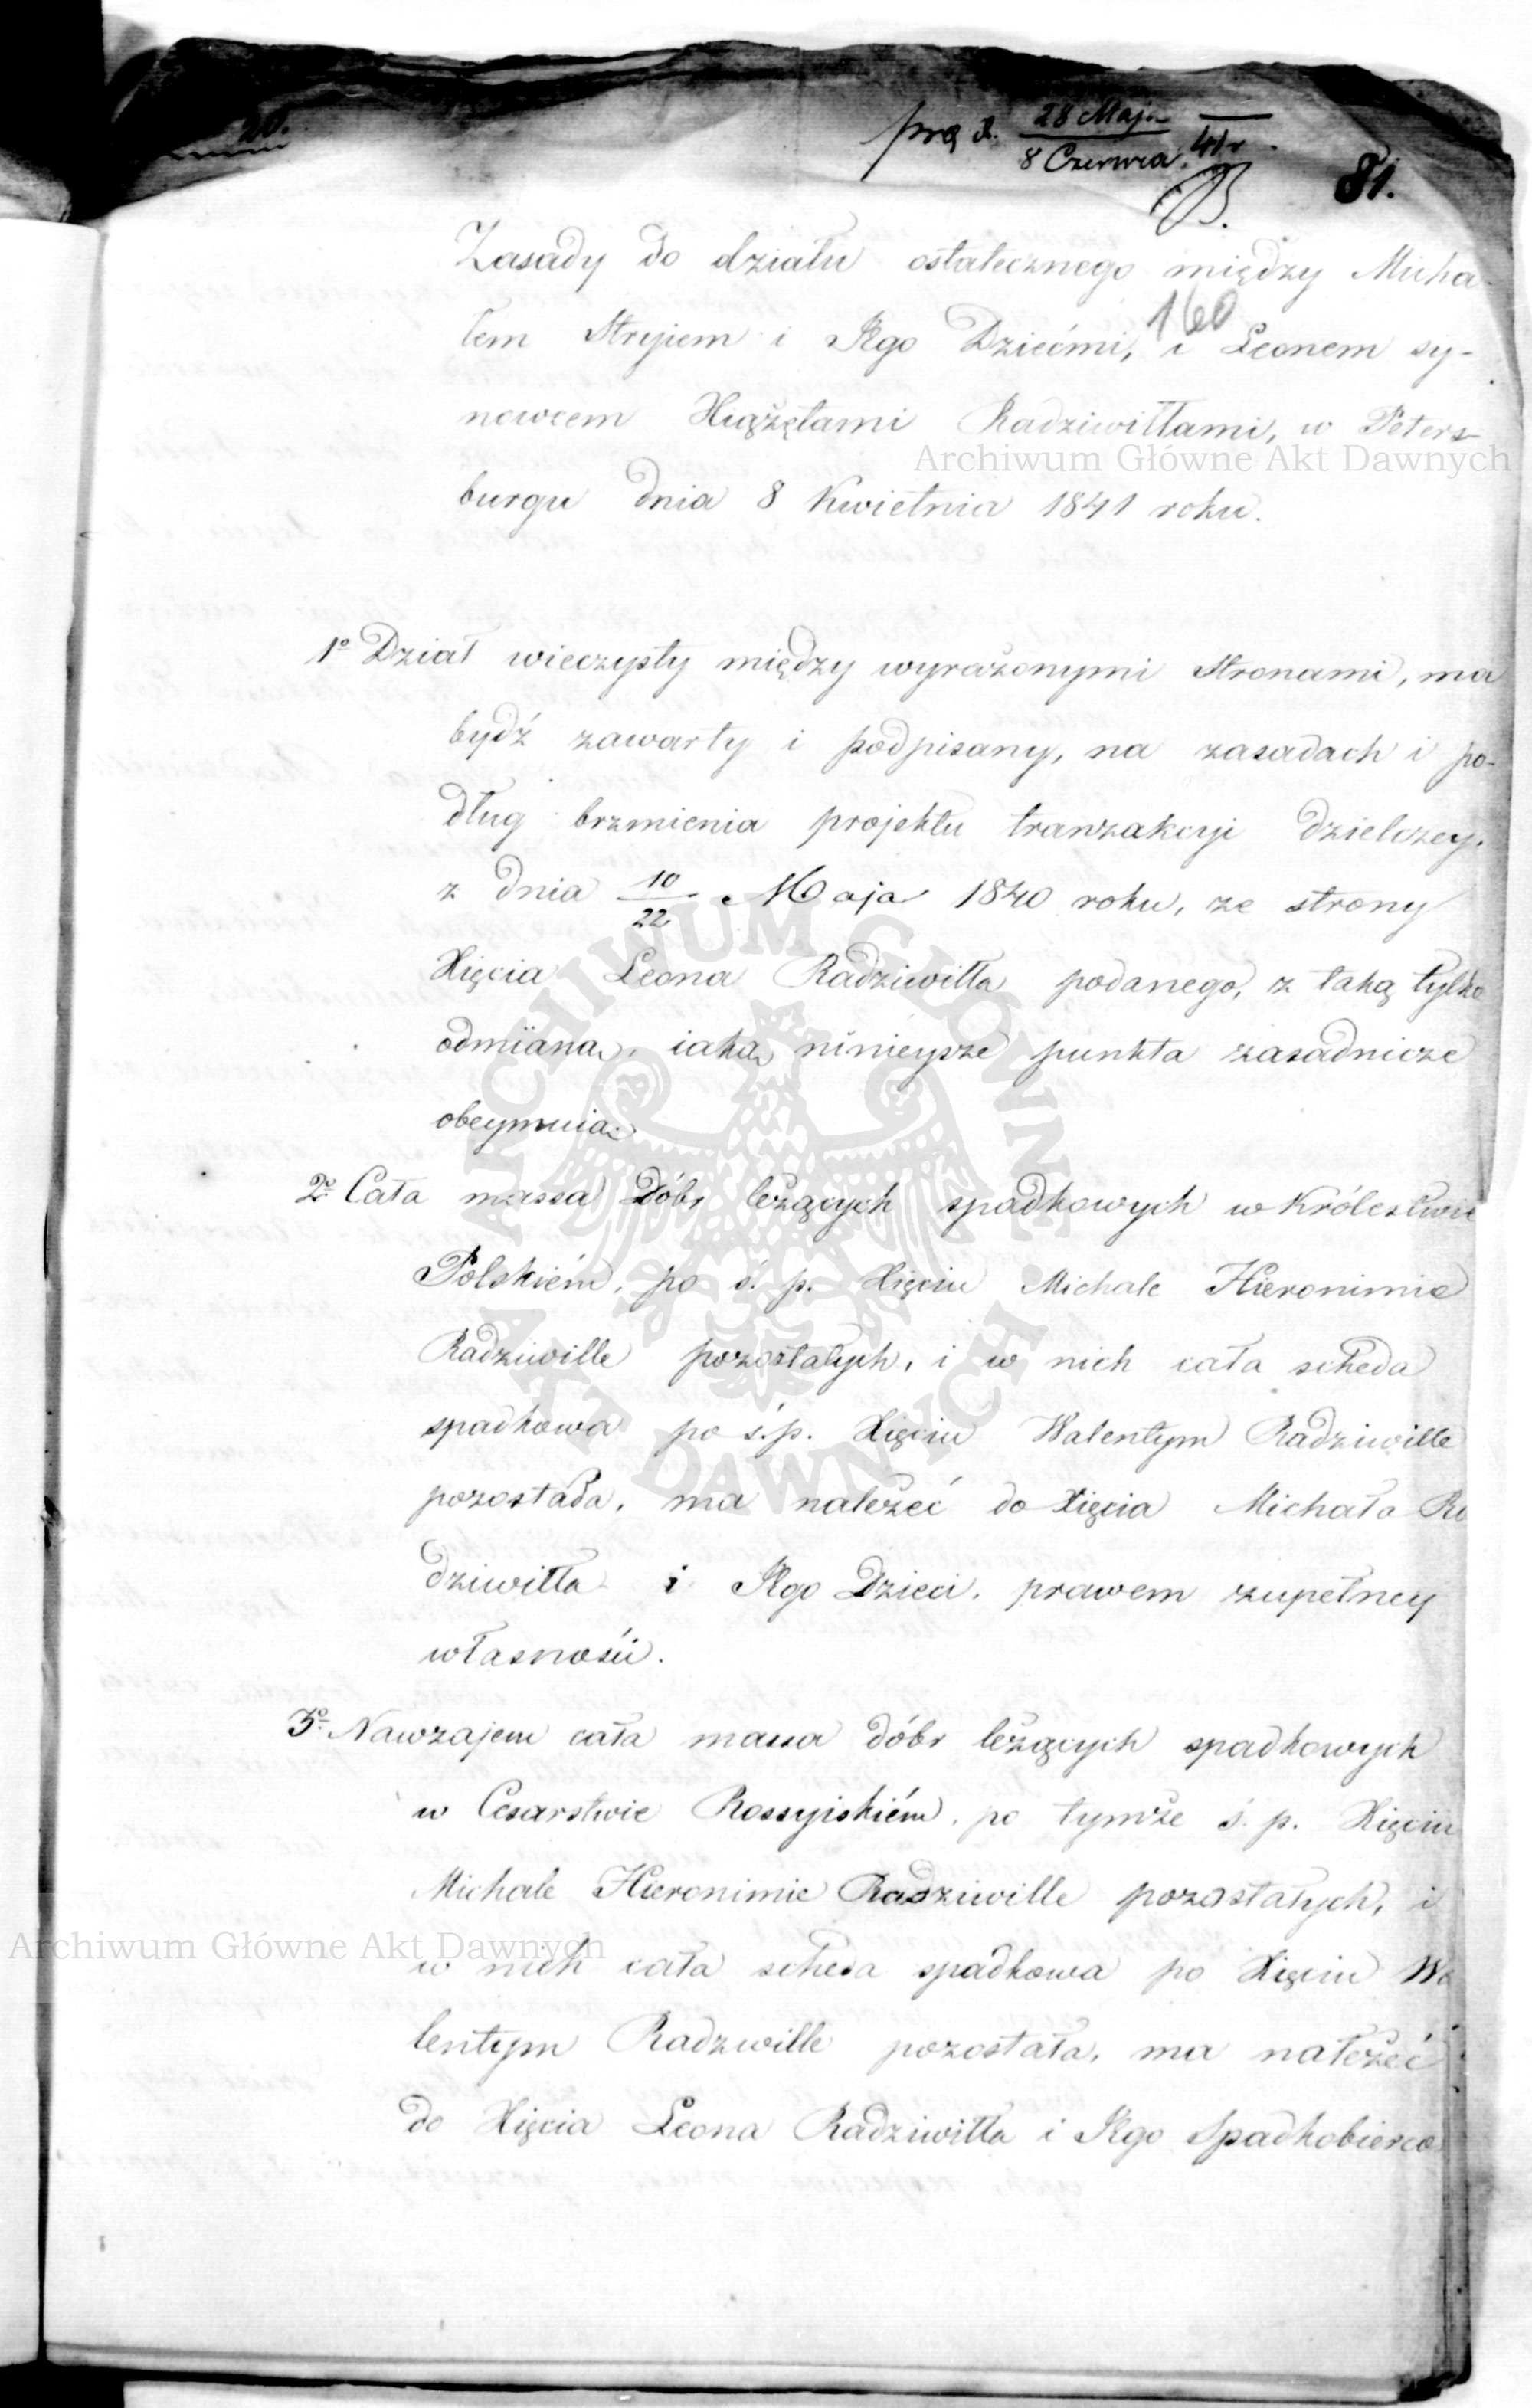 20.
28 Maja
8 Czerwca 41 r
81.
Zasady do działu ostatecznego między Micha-
łem Stryjem i Jego Dziećmi, i Leonem sy-
160
nowcem Xiążętami Radziwiłłami, w Peters-
Archiwum Główne Akt Dawnych
burgu dnia 8 Kwietnia 1841 roku.
1º Dział wieczysty między wyrażonymi Stronami, ma
bydź zawarty i podpisany, na zasadach i po-
dług brzmienia projektu tranzakcyi dzielczey,
z dnia 10/22 Maja 1840 roku, ze strony
Xięcia Leona Radziwiłła podanego, z taką tylko
odmianą, iaką ninieysze punkta zasadnicze
obeymuią.
2º Cała massa Dóbr leżących spadkowych w Królestwie
Polskiém, po ś. p. Xięciu Michale Hieronimie
Radziwille pozostałych, i w nich cała scheda
spadkowa po ś. p. Xięciu Walentym Radziwille
pozostała, ma należeć do Xięcia Michała Ra
dziwiłła i Jego Dzieci, prawem zupełney
własności.
3º Nawzajem cała massa dóbr leżących spadkowych
w Cesarstwie Rossyiskiém, po tymże ś. p. Xięciu
Michale Hieronimie Radziwille pozostałych, i
Archiwum Główne Akt Dawnych
w nich cała scheda spadkowa po Xięciu Wa
lentym Radzwille pozostała, ma należeć
do Xięcia Leona Radziwiłła i Jego Spadkobierco
ARCHIWUM GŁÓWNE AKT DAWNYCH